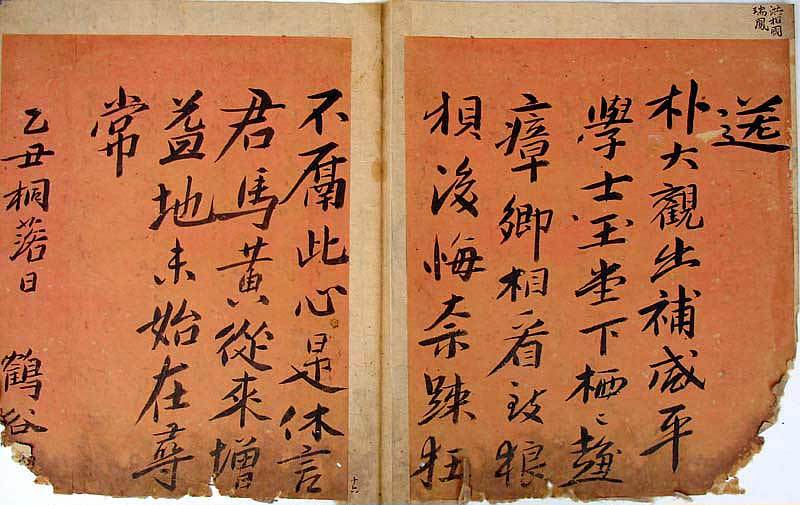 洪相國
瑞鳳
送
朴大觀出補咸平
學士玉堂下栖〻趨
瘴鄉相看致狼
狽後悔奈踈狂
不屑此心是休言
君馬黃從來增
益地未始在尋
常
乙丑桐落日
鶴谷
十六